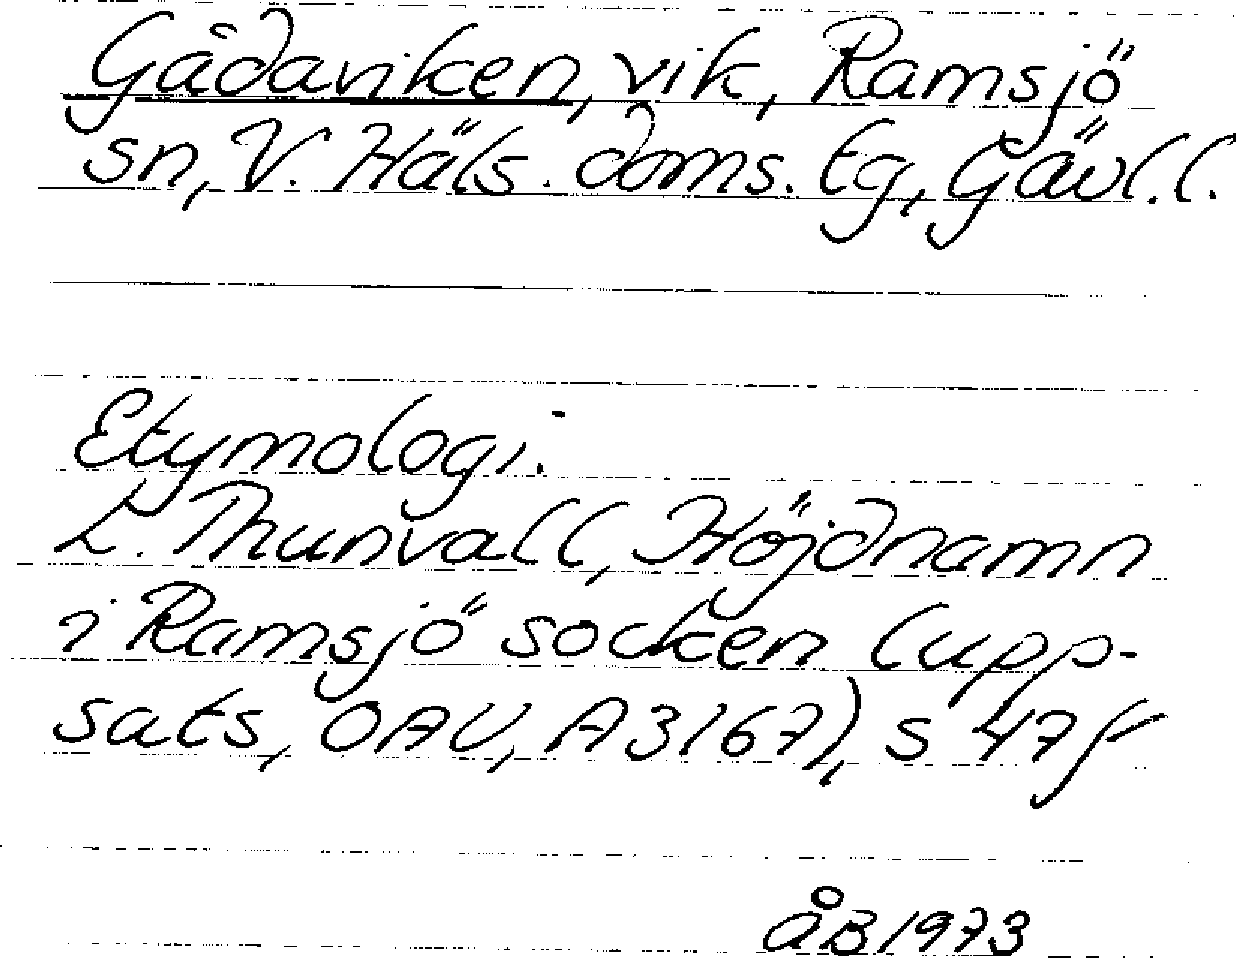 Gådaviken, vik, Ramsjö
sn, V. Häls. doms. tg, Gävl.l.
Etymologi.
L. Thunvall, Höjdnamn
i Ramsjö socken (upp-
sats, OAU, A3167), s 47f
åB 1973